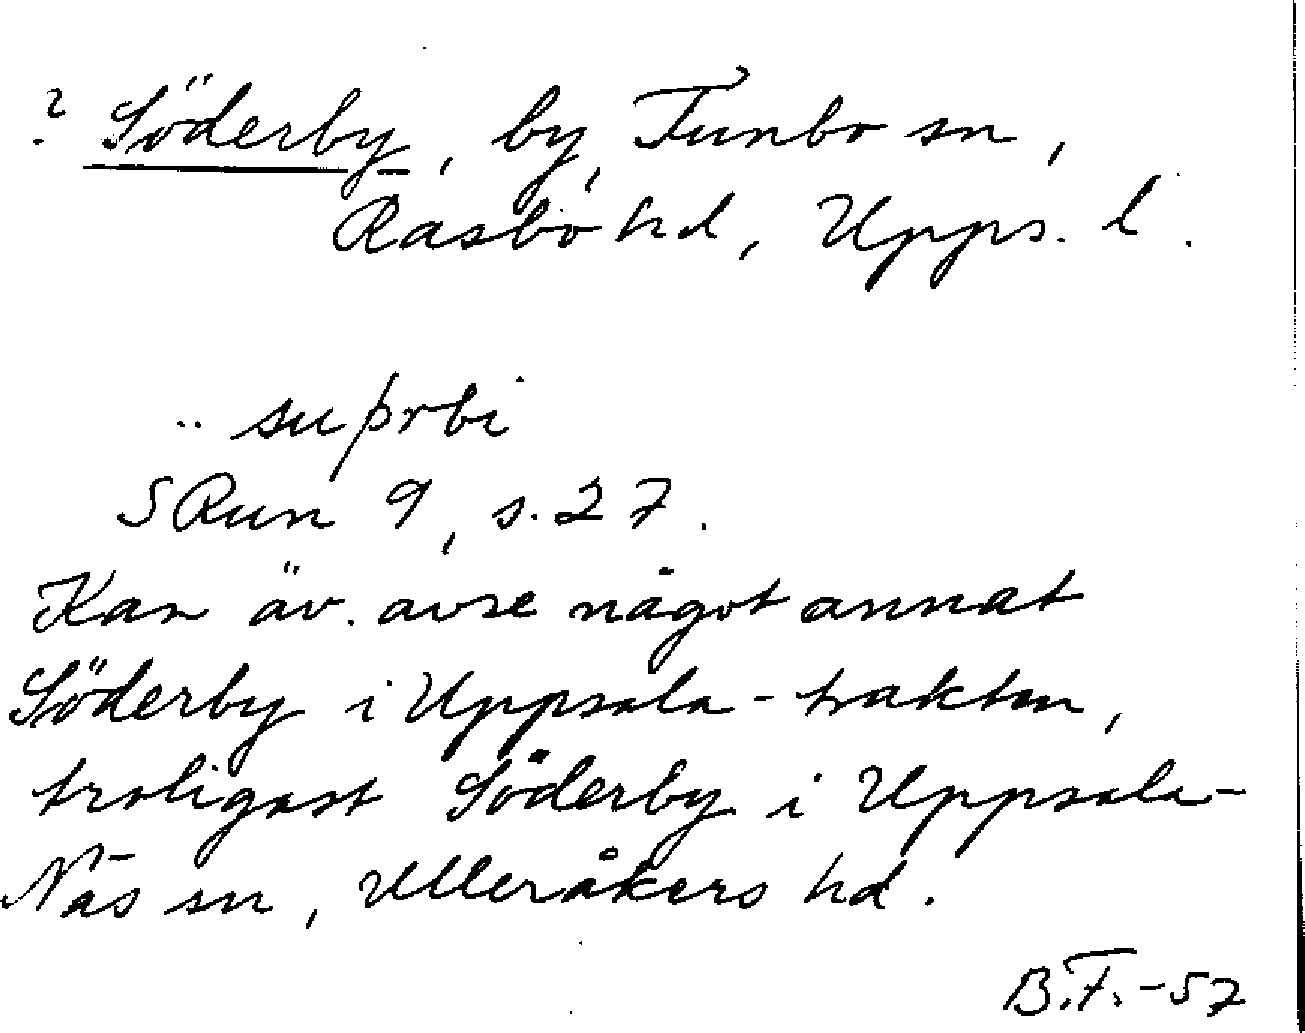 ? Söderby, by, Funbo sn,
Rasbo hd, Upps. l.
.. suþrbi
SRun 9, s. 27.
Kan äv. avse något annat
Söderby i Uppsala-trakten,
troligast Söderby i Uppsala-
Näs sn, Ulleråkers hd.
B.F.-57